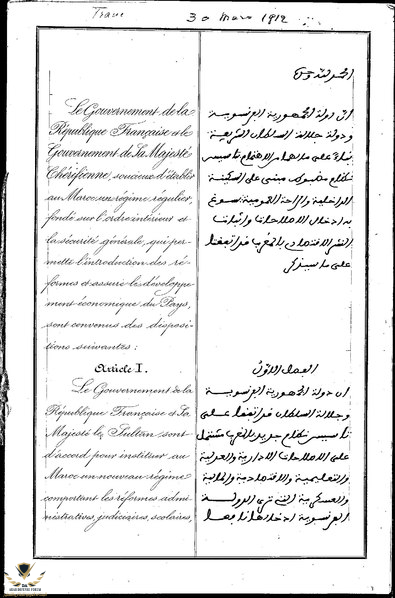 30 Mars 1912
Le Gouvernement de la
République Française et le
Gouvernement de Sa Majesté
Chérifienne, soucieux d'établir
au Maroc un régime régulier,
fondé sur l'ordre intérieur et
la sécurité générale, qui per-
mette l'introduction des ré-
formes et assure le développe-
ment économique du Pays,
sont convenus des disposi-
tions suivantes:
Article I.
Le Gouvernement de la
République Française et Sa
Majesté le Sultan sont
d'accord pour instituer au
Maroc un nouveau régime
comportant les réformes admi-
nistratives, judiciaires, scolaires,
ان دولة الجمهورية الفرنسوية
ودولة جلالة السلطان الشريفة
على ما سيذكر
الفصل الاول
ان دولة الجمهورية الفرنسوية
وجلالة السلطان قد اتفقا على
تاسيس نظام جديد بالمغرب مشتمل
على الاصلاحات الادارية والعدلية
والتعليمية والاقتصادية والمالية
والعسكرية التي ترى الدولة
الفرنسوية ادخالها نافعا